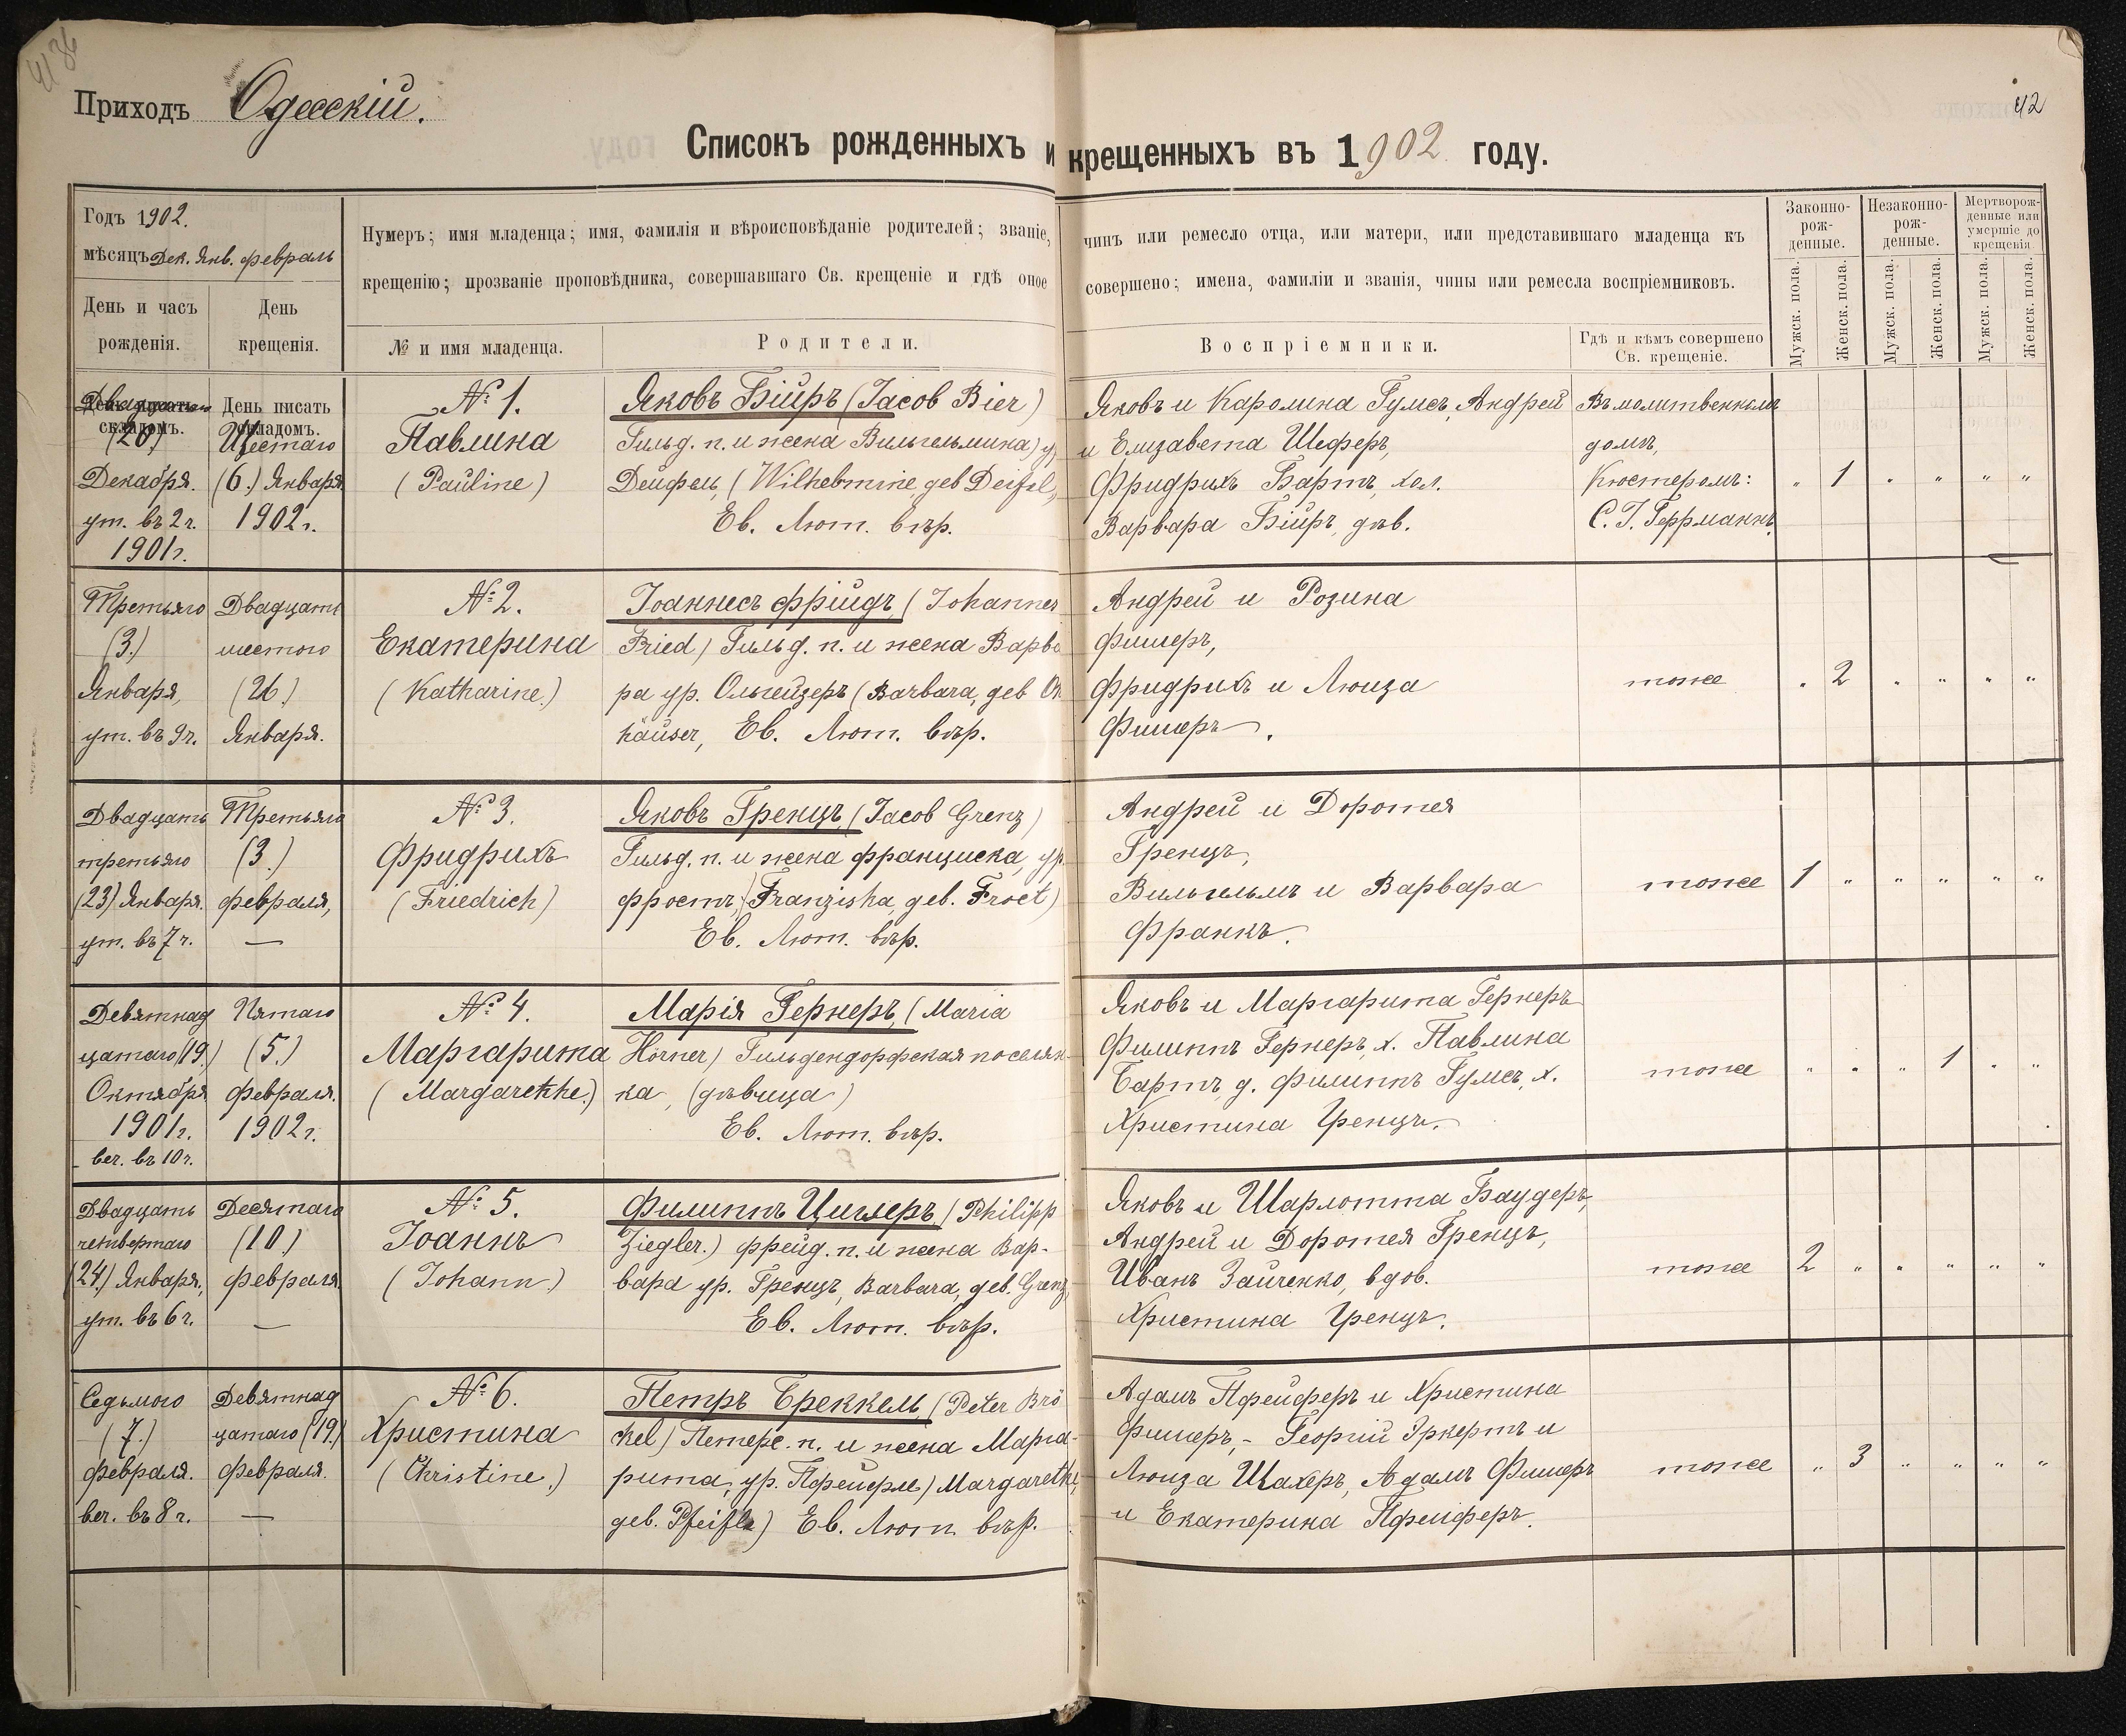 41 36
Приходъ Одесскій.
42
Списокъ рожденныхъ и крещенныхъ въ 1902 году.
Годъ 1902.
мѣсяцъ Дек. Янв. февраль
День и часъ
рожденія.
День
крещенія.
Нумеръ; имя младенца; имя, фамилія и вѣроисповѣданіе родителей; званіе, чинъ или ремесло отца, или матери, или представившаго младенца къ
крещенію; прозваніе проповѣдника, совершавшаго Св. крещеніе и гдѣ оное совершено; имена, фамиліи и званія, чины или ремесла воспріемниковъ.
№ и имя младенца.
Родители.
Воспріемники.
Гдѣ и кѣмъ совершено
Св. крещеніе.
Законно-
рож-
денные.
Незаконно-
рож-
денные.
Мертворож-
денные или
умершіе до
крещенія.
Мужск. пола.
Женск. пола.
Мужск. пола.
Женск. пола.
Мужск. пола.
Женск. пола.
День писать
складомъ.
(20)
Декабря.
ут. въ 2 ч.
1901 г.
День писать
складомъ.
Шестаго
(6.) Января
1902 г.
№ 1.
Павлина
(Pauline)
Яковъ Бійръ (Jacob Bier)
Гильд. п. и жена Вильгельмина) у
Дейфель, (Wilhelmine geb Deifel,
Ев. Лют. вѣр.
Яковъ и Каролина Гумсъ, Андрей
и Елизавета Шеферъ,
Фридрихъ Бартъ, хол.
Варвара Бійръ, дѣв.
Въ молитвенномъ
домѣ,
Кюстеромъ:
С. Г. Геррманнъ.
" 1 " " " "
Третьяго
(3.)
Января,
ут. въ 9 ч.
Двадцать
шестого
(26.)
Января.
№ 2.
Екатерина
(Katharine.)
Іоаннесъ Фрійдъ, (Johannes
Fried) Гильд. п. и жена Варва
ра ур. Ольгейзеръ (Barbara, geb Oh
häuser, Ев. Лют. вѣр.
Андрей и Розина
Фишеръ,
Фридрихъ и Люиза
Фишеръ.
тоже
" 2 " " " "
Двадцать
третьяго
(23) Января.
ут. въ 7 ч.
Третьяго
(3.)
февраля,
—
№ 3.
Фридрихъ
(Friedrich)
Яковъ Гренцъ, (Jacob Grenz)
Гильд. п. и жена Франциска, ур.
Фростъ,) Franziska, geb. Frost)
Ев. Лют. вѣр.
Андрей и Доротея
Гренцъ,
Вильгельмъ и Варвара
Франкъ.
тоже
1 " " " " "
Девятнад
цатаго (19.)
Октября
1901 г.
веч. въ 10 ч.
Пятаго
(5.)
Февраля.
1902 г.
№ 4.
Маргарита
(Margarethe.)
Марія Гернеръ, (Maria
Hörner) Гильдендорфская поселян-
ка, (дѣвица)
Ев. Лют. вѣр.
Яковъ и Маргарита Гернеръ
Филиппъ Гернеръ, х. Павлина
Бартъ, д. Филиппъ Гумсъ, х.
Христина Гренцъ.
тоже
" " " 1 " "
Двадцать
четвертаго
(24.) Января,
ут. въ 6 ч.
Десятаго
(10.)
февраля.
—
№ 5.
Іоаннъ
(Johann.)
Филиппъ Циглеръ, (Philipp
Ziegler.) Фрейд. п. и жена Вар-
вара ур. Гренцъ, Barbara, geb. Grenz,
Ев. Лют. вѣр.
Яковъ и Шарлотта Баудеръ,
Андрей и Доротея Гренцъ,
Иванъ Зайченко, вдов.
Христина Гренцъ.
тоже
2 " " " " "
Седьмого
(7.)
февраля.
веч. въ 8 ч.
Девятнад
цатаго (19.)
Февраля.
—
№ 6.
Христина
(Christine.)
Петръ Бреккель, (Peter Brö
kel) Петерс. п. и жена Марга-
рита, ур. Пфейфле) Margarethe,
geb. Pfeifle) Ев. Лют. вѣр.
Адамъ Пфейферъ и Христина
Фишеръ, - Георгій Эркертъ и
Люиза Шахеръ, Адамъ Фишеръ
и Екатерина Пфейферъ.
тоже
" 3 " " " "